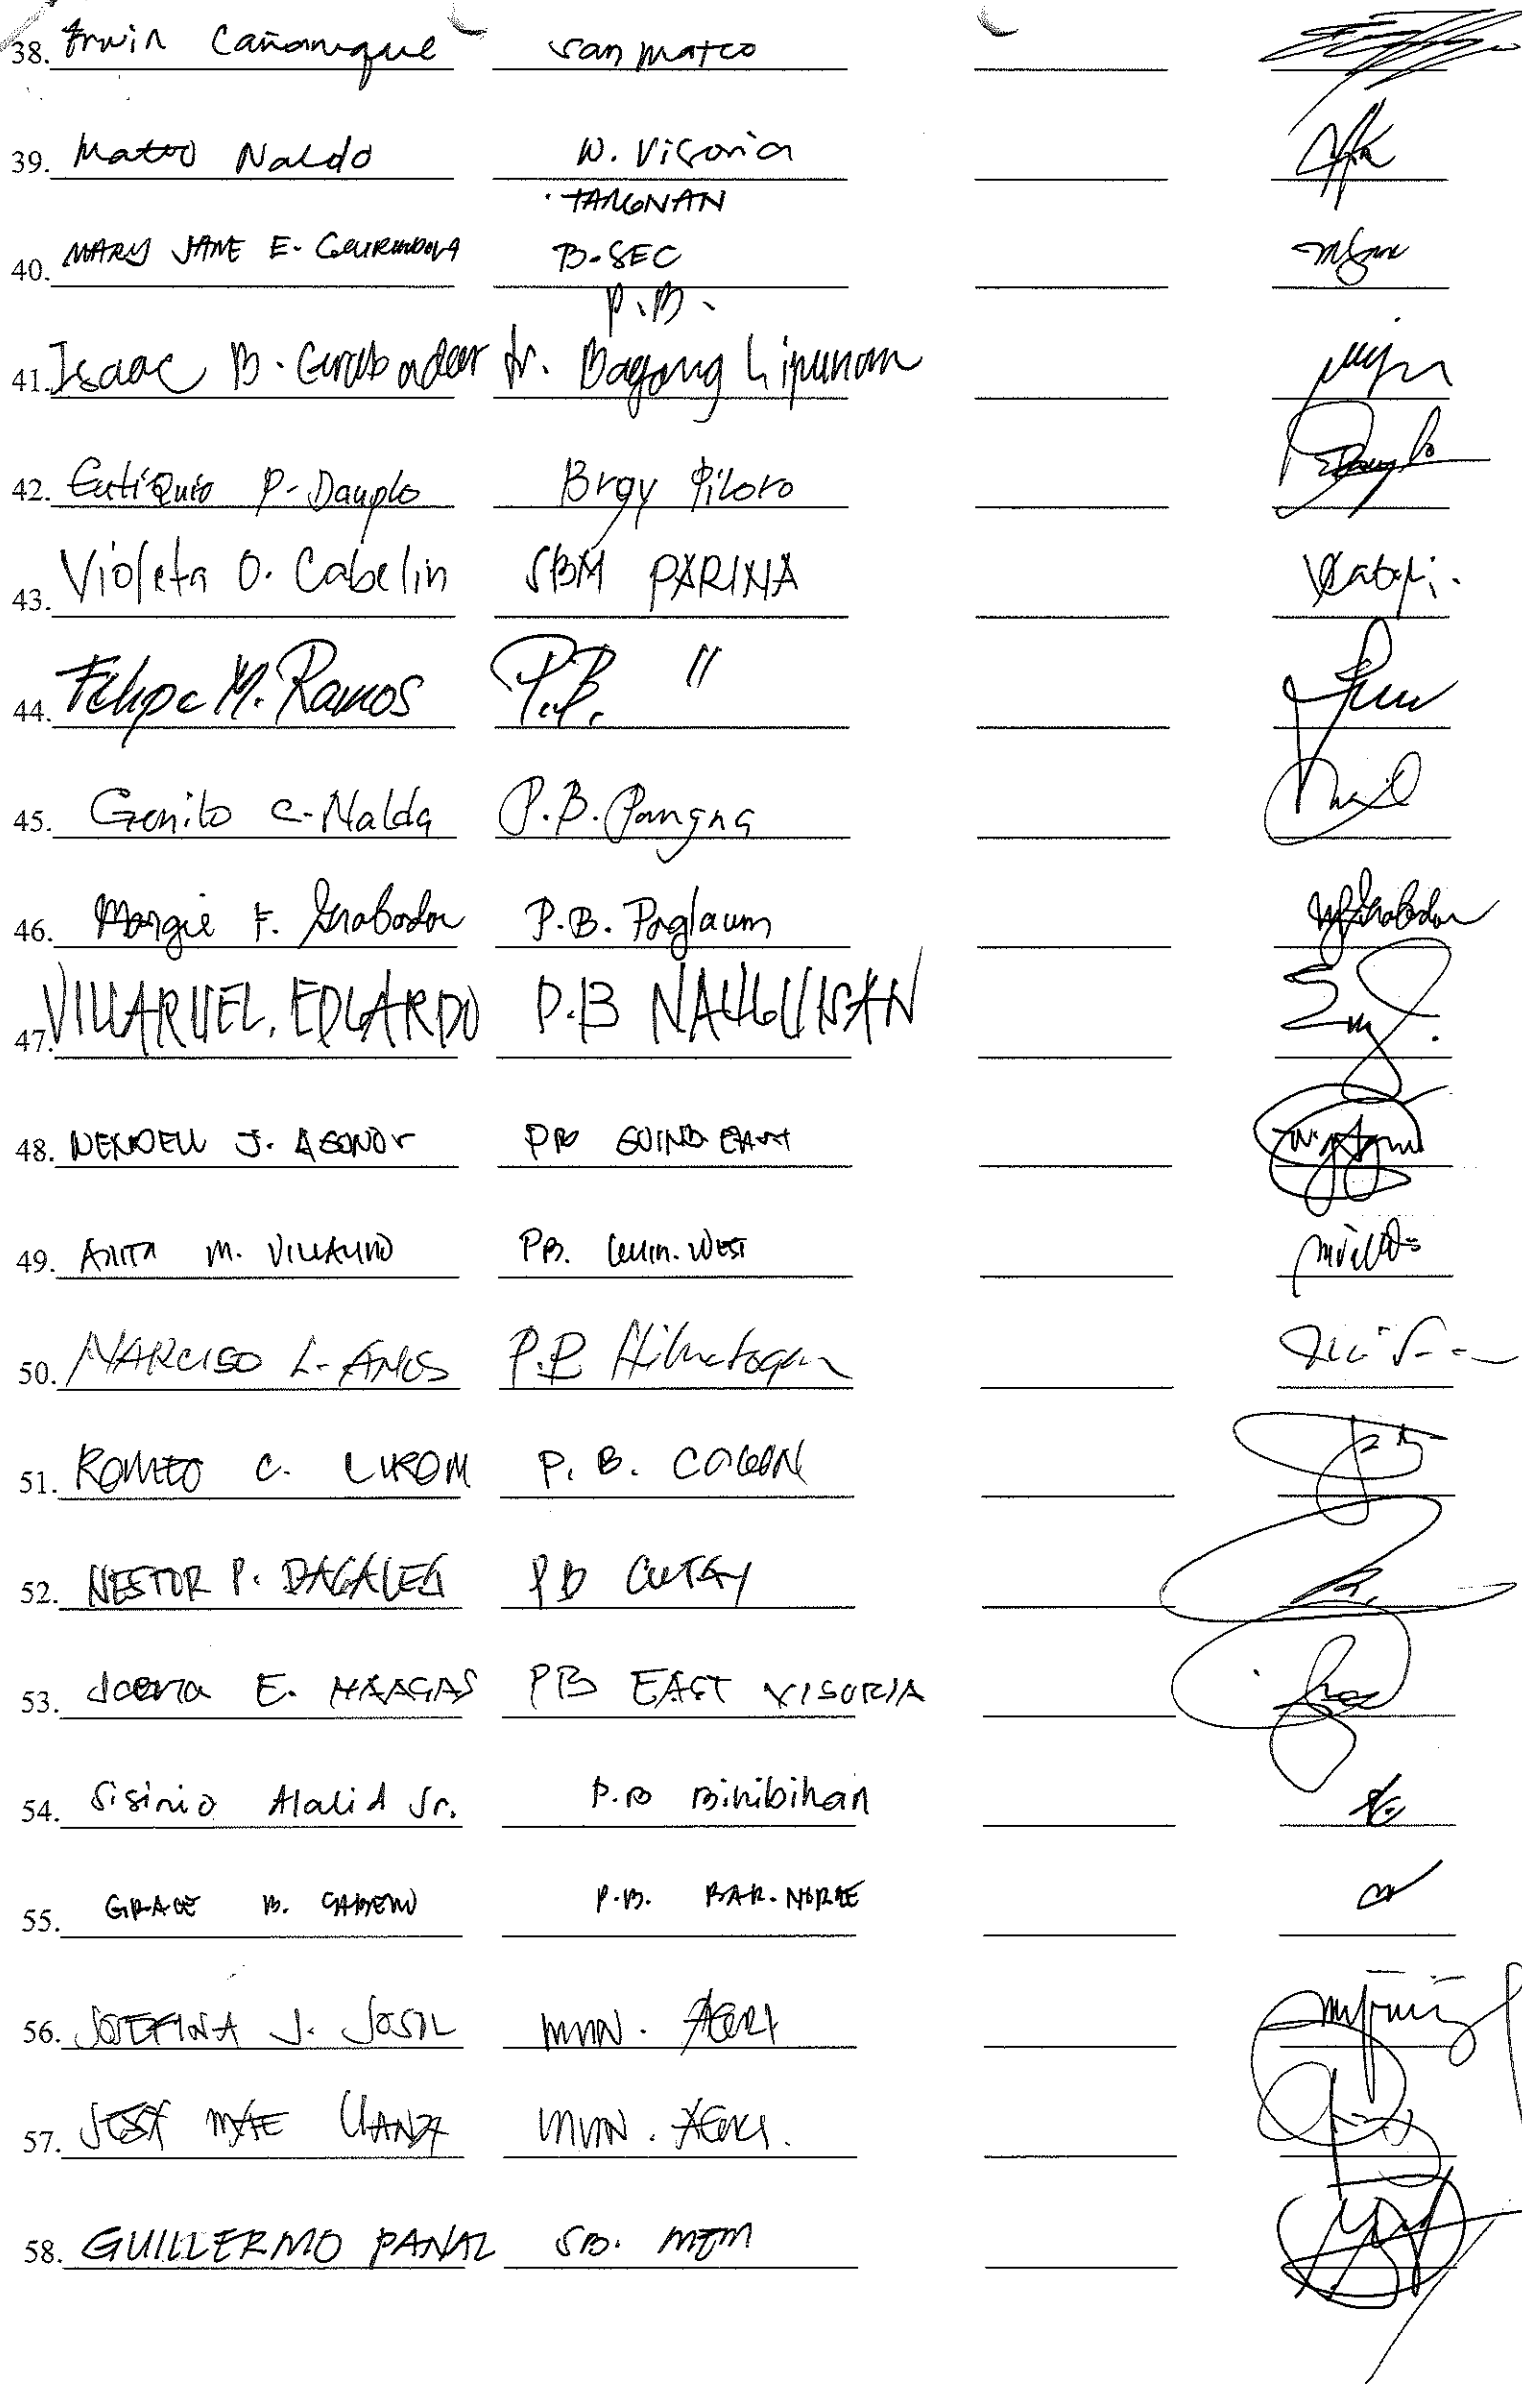 38. Erwin Cañamaque San Mateo
39. Mateo Naldo W. Visoria
TAMGNAN
40. MARY JANE E. B-SEC
P.B.
41. Isaac B. Grabador Jr. Bagong Lipunan
42. Eutiquio P. Dauplo Brgy Piloro
43. Violeta O. Cabelin SBM PARINA
44. Felipe M. Ramos P.B. "
45. Genito C. Nalda P.B. Pangna
46. Margie F. Grabador P.B. Paglaum
47. VILLARUEL, EDGARDO P.B NAULGUISAN
48. WENDELL J. AGONOY PB GUIND EAST
49. ANITA M. PB. Guin. WEST
50. NARCISO L. AMOS P.B
51. ROMEO C. LUROM P. B. COGON
52. NESTOR P. DACALES PB CUTAY
53. E. HAAGAS PB EAST VISORIA
54. Sisinio Alalid Jr. P.B Binibihan
55. GRACE B. P.B. BAR. NORTE
56. JOSEFINA J. JOSOL MUN. AGRI
57. MAE LLANZA MUN. AGRI.
58. GUILLERMO PANAL SB. MEM